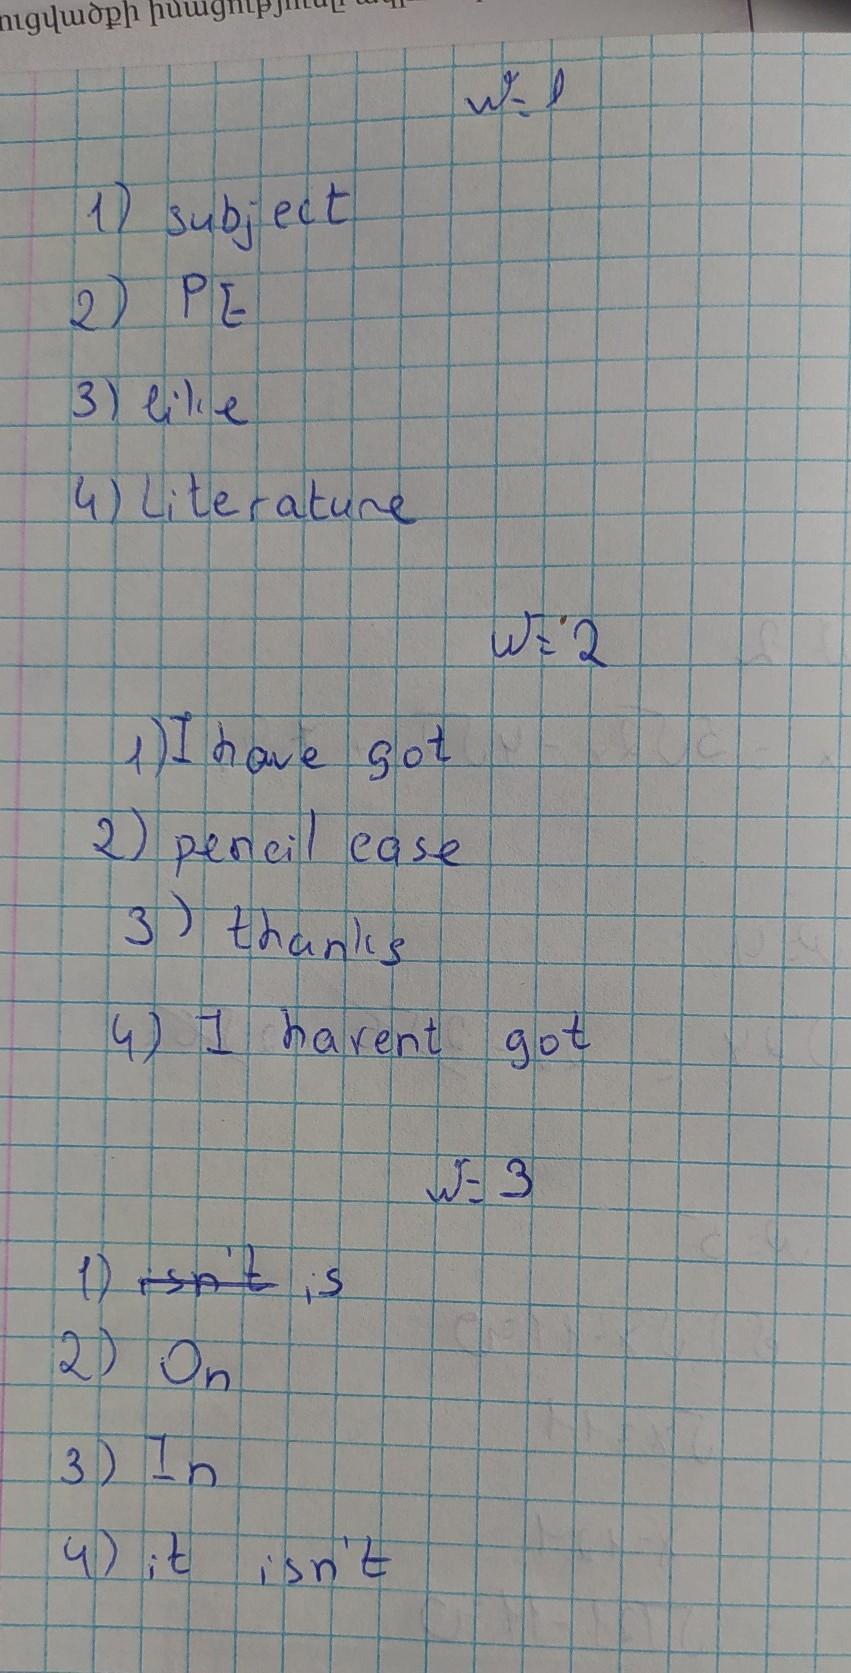 ուցվածքի իմացությունը
№ 1
1) subject
2) PE
3) like
4) Literature
№ 2
1) I have got
2) pencil case
3) thanks
4) I havent got
№ 3
1) isn't is
2) On
3) In
4) it isn't